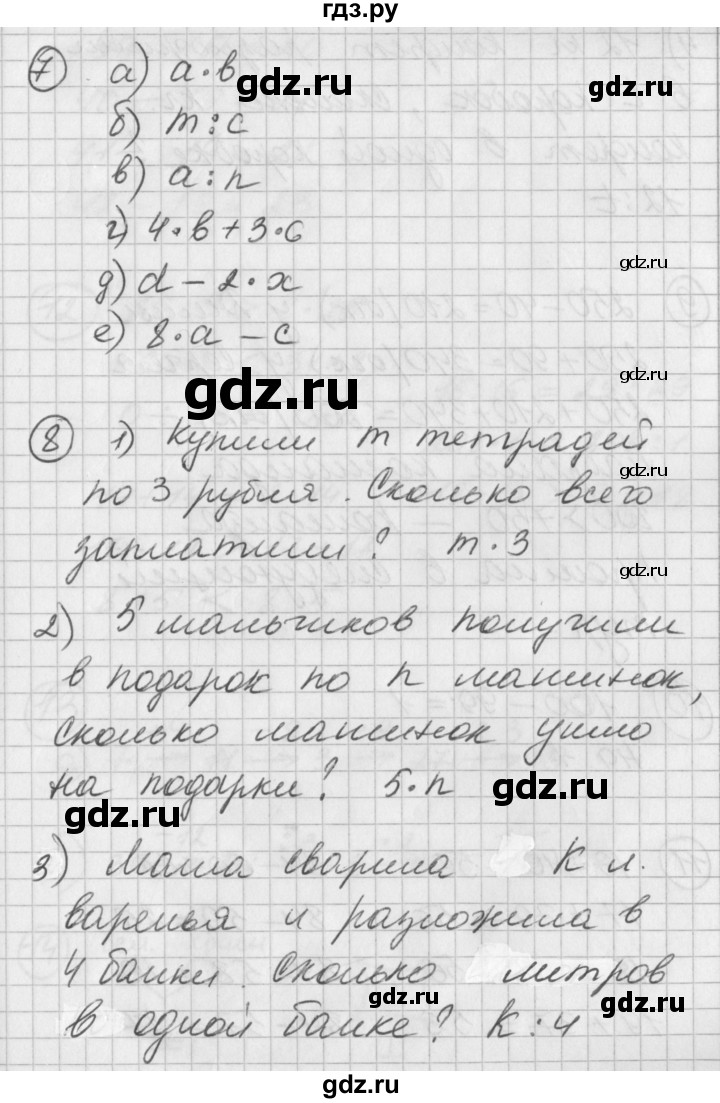 гдз.ру
7 а) a·в
б) m:c
в) a:n
г) 4·в+3·6
д) d-2·x
е) 8·a-c
8 1) Купили m тетрадей
по 3 рубля. Сколько всего
заплатили? m·3
2) 5 мальчиков получили
в подарок по n машинок,
сколько машинок ушло
на подарки? 5·n
3) Маша сварила К л.
варенья и разложила в
4 банки. сколько литров
в одной банке? К:4
gdz.ru
gdz.ru
gdz.ru
gdz.ru
gdz.ru
gdz.ru
gdz.ru
gdz.ru
gdz.ru
gdz.ru
gdz.ru
gdz.ru
gdz.ru